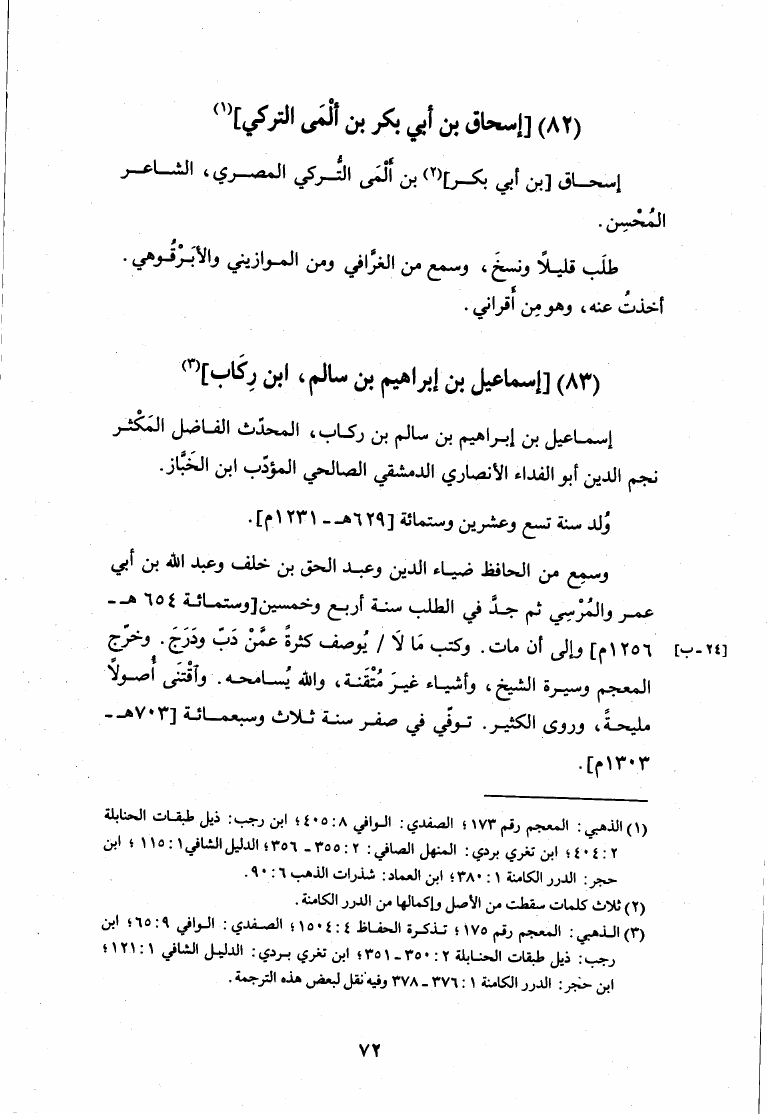 (٨٢) [إسحاق بن أبي بكر بن أَلْمَى التركي](١)
إسحـاق [بن أبي بكـر](٢) بن أَلْمَى التُّـركي المصـري، الشـاعـر
المُحْسِن.
طلَب قليـلاً ونسخَ، وسمع من الغرَّافي ومن المـوازيني والأَبَـرْقُـوهي.
أخذتُ عنه، وهو مِن أَقراني.
(٨٣) [إسماعيل بن إبراهيم بن سالم، ابن رِكَاب](٣)
إسمـاعيل بن إبـراهيم بن سالم بن ركـاب، المحدّث الفـاضل المَكْثـر
نجم الدين أبو الفداء الأنصاري الدمشقي الصالحي المؤدّب ابن الخَبَّاز.
وُلد سنة تسع وعشرين وستمائة [٦٢٩هـ ـ ١٢٣١م].
وسمِع من الحافظ ضيـاء الدين وعبـد الحق بن خلف وعبد الله بن أبي
عمـر والمُرْسِي ثم جدَّ في الطلب سنـة أربع وخمسين[وستمـائـة ٦٥٤ هـ ـ
١٢٥٦م] وإلى أن مات. وكتب مَا لاَ / يُوصف كثرةً عمَّنْ دَبّ ودَرَجَ. وخرّج [٢٤-ب]
المعجم وسيرة الشيخ، وأشيـاء غيـرَ مُتْقَنـة، والله يُسـامحـه. وٱقْتَنَى أُصـولاً
مليحـةً، وروى الكثيـر. تـوفّي في صفـر سنـة ثـلاث وسبعمـائـة [٧٠٣هـ ـ
١٣٠٣م].
(١) الذهبي: المعجم رقم ١٧٣؛ الصفدي: الـوافي ٨: ٤٠٥؛ ابن رجب: ذيل طبقات الحنابلة
٢: ٤٠٤؛ ابن تغري بردي: المنهل الصافي: ٢: ٣٥٥ ـ ٣٥٦؛ الدليل الشافي ١: ١١٥؛ ابن
حجر: الدرر الكامنة ١: ٣٨٠؛ ابن العماد: شذرات الذهب ٦: ٩٠.
(٢) ثلاث كلمات سقطت من الأصل وإكمالها من الدرر الكامنة.
(٣) الـذهبي: المعجم رقم ١٧٥؛ تـذكـرة الحفـاظ ٤: ١٥٠٤؛ الصـفدي: الـوافي ٩: ٦٥؛ ابن
رجب: ذيل طبقات الحنـابلة ٢: ٣٥٠ ـ ٣٥١؛ ابن تغري بـردي: الدليـل الشافي ١: ١٢١؛
ابن حجر: الدرر الكامنة ١: ٣٧٦ ـ ٣٧٨ وفيه نقل لبعض هذه الترجمة.
٧٢